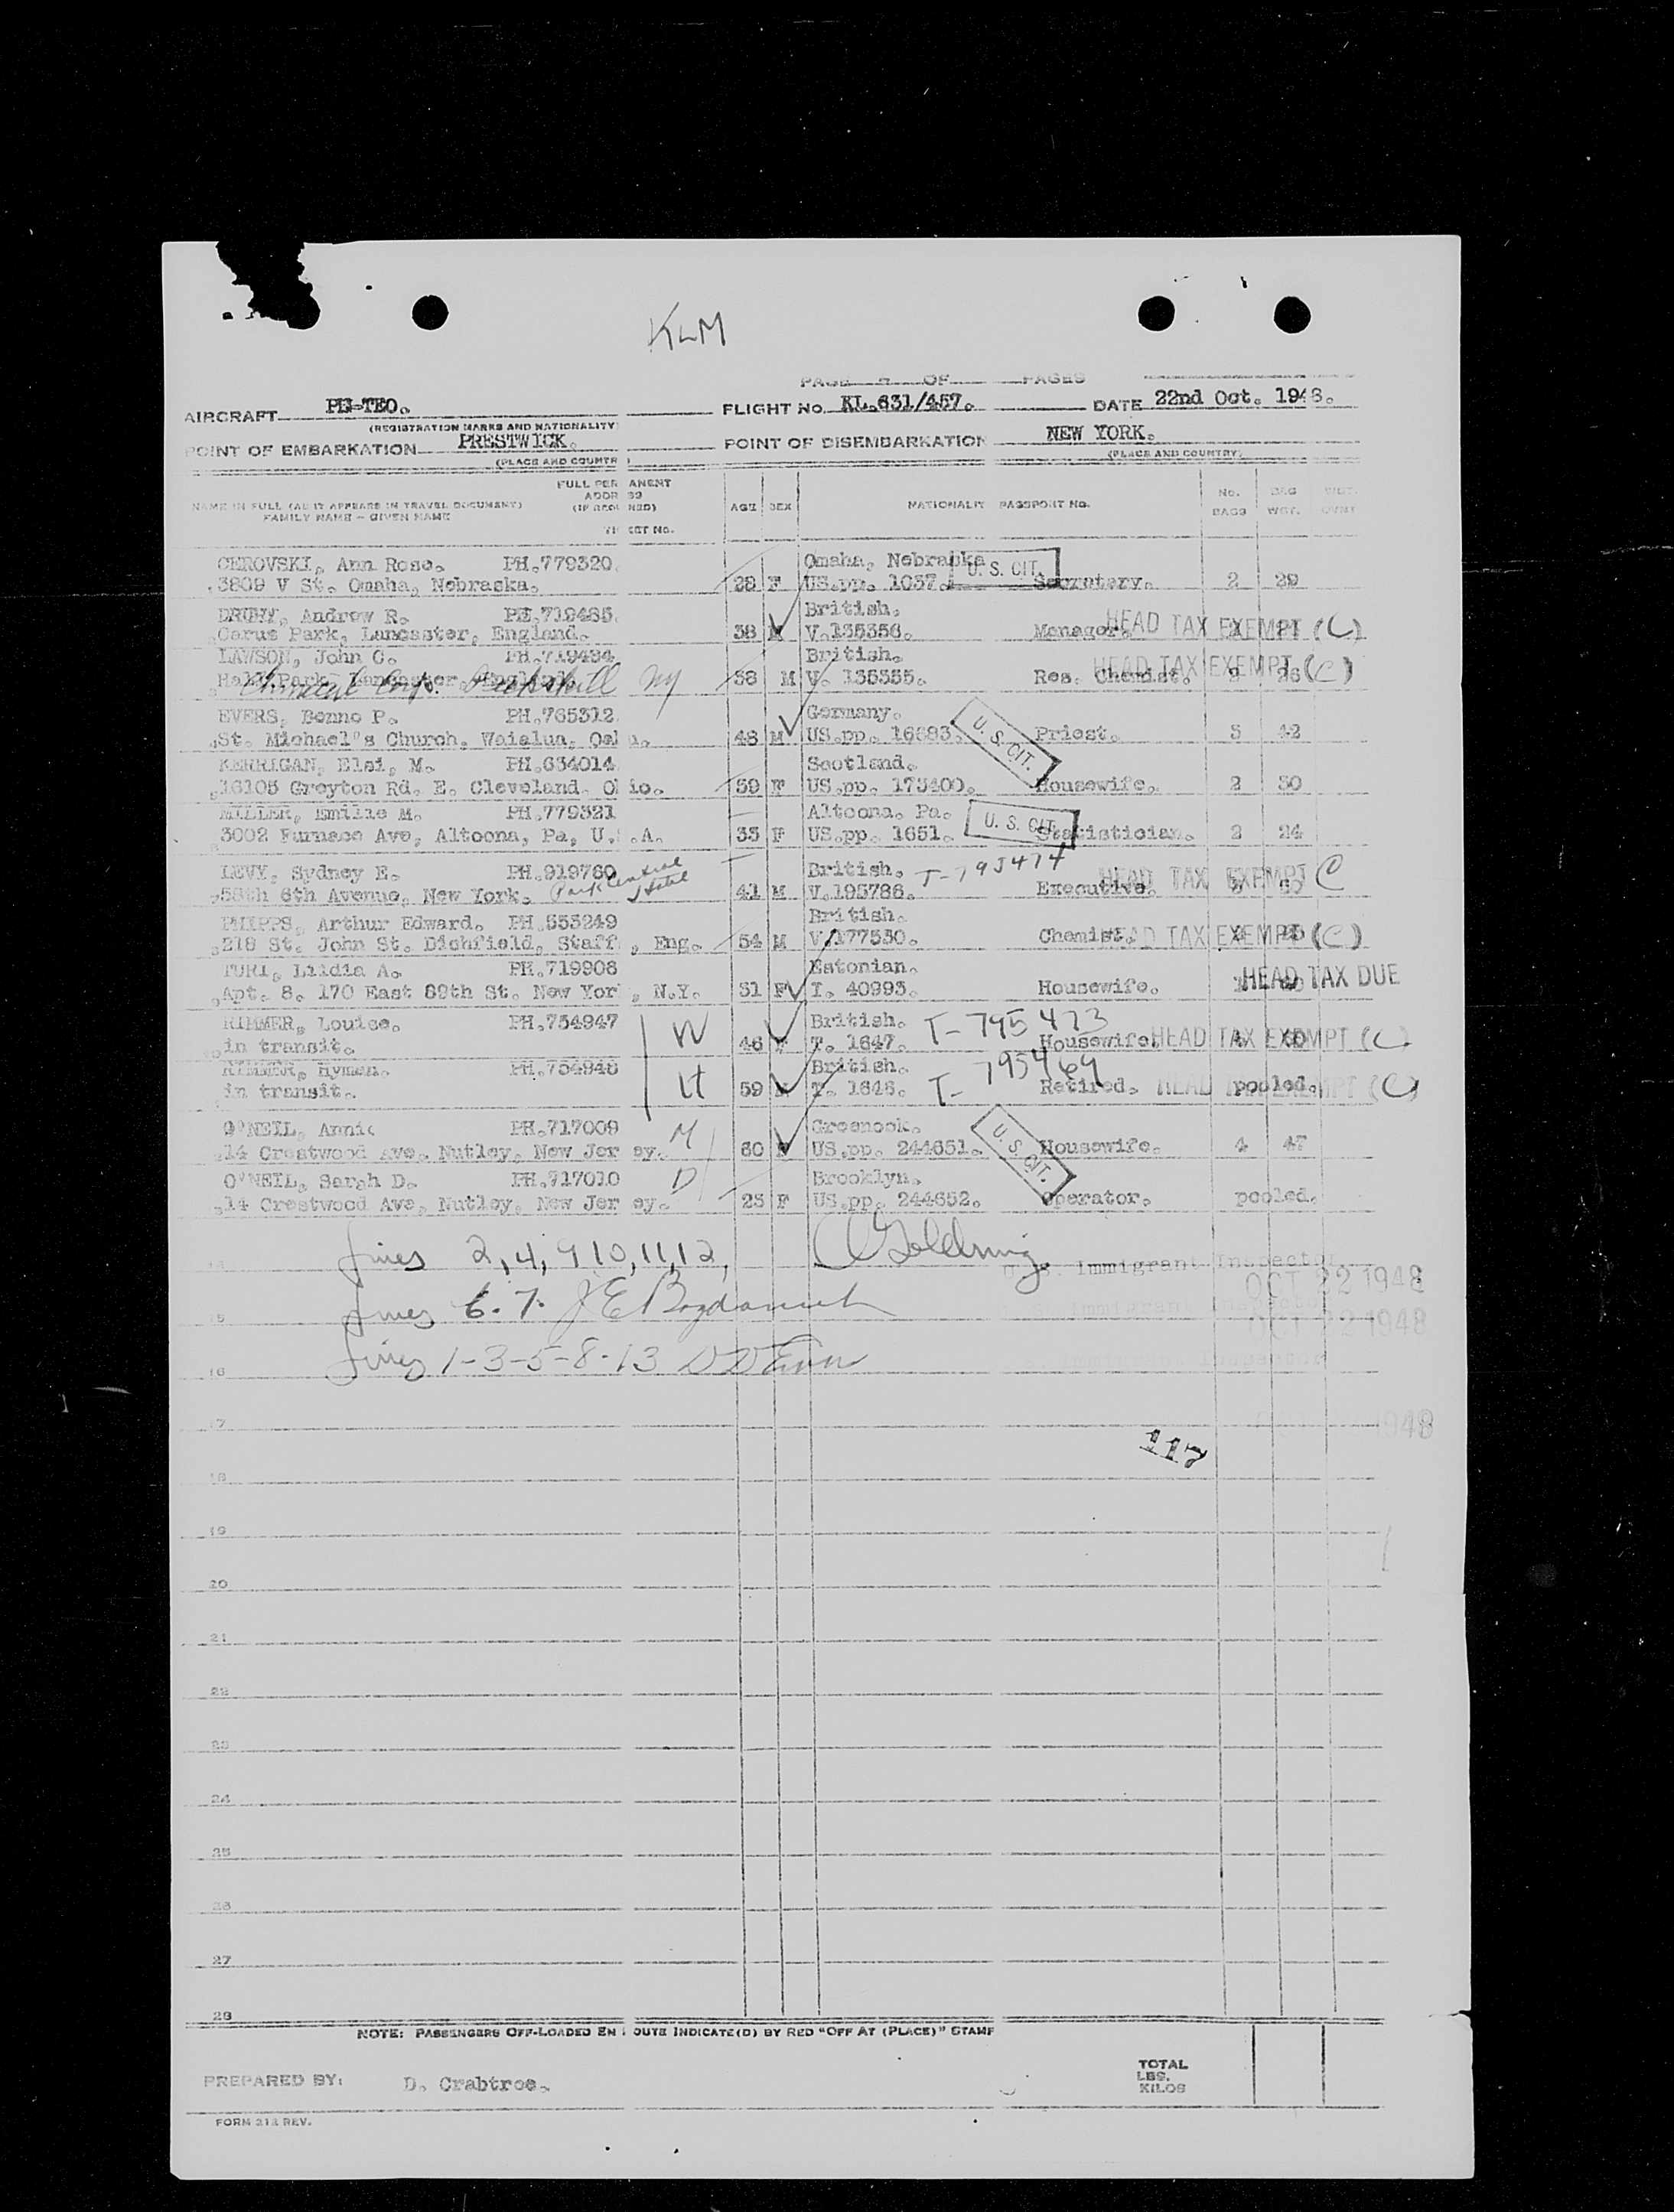 KLM
PAGE OF PAGES
AIRCRAFT PH-TEO. FLIGHT NO. KL.631/457. DATE 22nd Oct. 1948.
(REGISTRATION MARKS AND NATIONALITY)
POINT OF EMBARKATION PRESTWICK. POINT OF DISEMBARKATION NEW YORK.
(PLACE AND COUNTRY) (PLACE AND COUNTRY)
NAME IN FULL (AS IT APPEARS IN TRAVEL DOCUMENT) FULL PERMANENT ADDRESS (IF REQUIRED) AGE SEX NATIONALITY PASSPORT NO. No. BAGS BAG WGT.
FAMILY NAME - GIVEN NAME TICKET NO.
CEROVSKI, Ann Rose. PH.779320. Omaha, Nebraska U. S. CIT.
3809 V St. Omaha, Nebraska. 28 F US.pp. 1037. Secretary. 2 29
Andrew R. PH.719485. British.
Carus Park, Lancaster, England. 38 M V.135356. Manager. HEAD TAX EXEMPT (C)
LAWSON, John C. PH.719484 British.
Hall Park, Lancaster, England. NY 38 M V. 135355. Res. Chemist. HEAD TAX EXEMPT (C)
EVERS, Benno P. PH.765312. Germany.
St. Michael's Church. Waialua, Oahu. 48 M US.pp. 16683. U. S. CIT. Priest. 3 42
KERRIGAN, Elsi, M. PH.634014 Scotland.
16105 Greyton Rd. E. Cleveland. Ohio. 59 F US.pp. 173400. Housewife. 2 30
MILLER, Emilie M. PH.779321 Altoona. Pa.
3002 Furnace Ave, Altoona, Pa, U.S.A. 33 F US.pp. 1651. U. S. CIT. Statistician. 2 24
LEVY, Sydney E. PH.919760 British. T-795474
55th 6th Avenue, New York. Park Central Hotel 41 M V.195786. Executive. HEAD TAX EXEMPT C
PHIPPS, Arthur Edward. PH.553249 British.
218 St. John St. Dichfield, Staff, Eng. 54 M V.177530. Chemist. HEAD TAX EXEMPT (C)
TURI, Lildia A. PH.719908 Estonian.
Apt. 8. 170 East 89th St. New York, N.Y. 31 F T. 40993. Housewife. HEAD TAX DUE
RIMMER, Louise. PH.754947 W British. T-795473
in transit. 46 F T. 1647. Housewife. HEAD TAX EXEMPT (C)
RIMMER, Hyman. PH.754948 H British. T-795469
in transit. 59 M T. 1646. Retired. HEAD TAX EXEMPT (C) pooled.
O'NEIL, Annie PH.717009 M Greenock.
14 Crestwood Ave. Nutley, New Jersey. 60 F US.pp. 244651. U. S. CIT. Housewife. 4 47
O'NEIL, Sarah D. PH.717010 D Brooklyn.
14 Crestwood Ave. Nutley. New Jersey. 25 F US.pp. 244652. Operator. pooled.
lines 2, 4, 9, 10, 11, 12,
U.S. Immigrant Inspector
OCT 22 1948
15 lines 6. 7.
Immigrant Inspector
OCT 22 1948
16 lines 1-3-5-8-13
17 1948
117
18
19
20
21
22
23
24
25
26
27
28
NOTE: PASSENGERS OFF-LOADED EN ROUTE INDICATE(D) BY RED "OFF AT (PLACE)" STAMP
TOTAL
LBS.
KILOS
PREPARED BY: D. Crabtree.
FORM 212 REV.